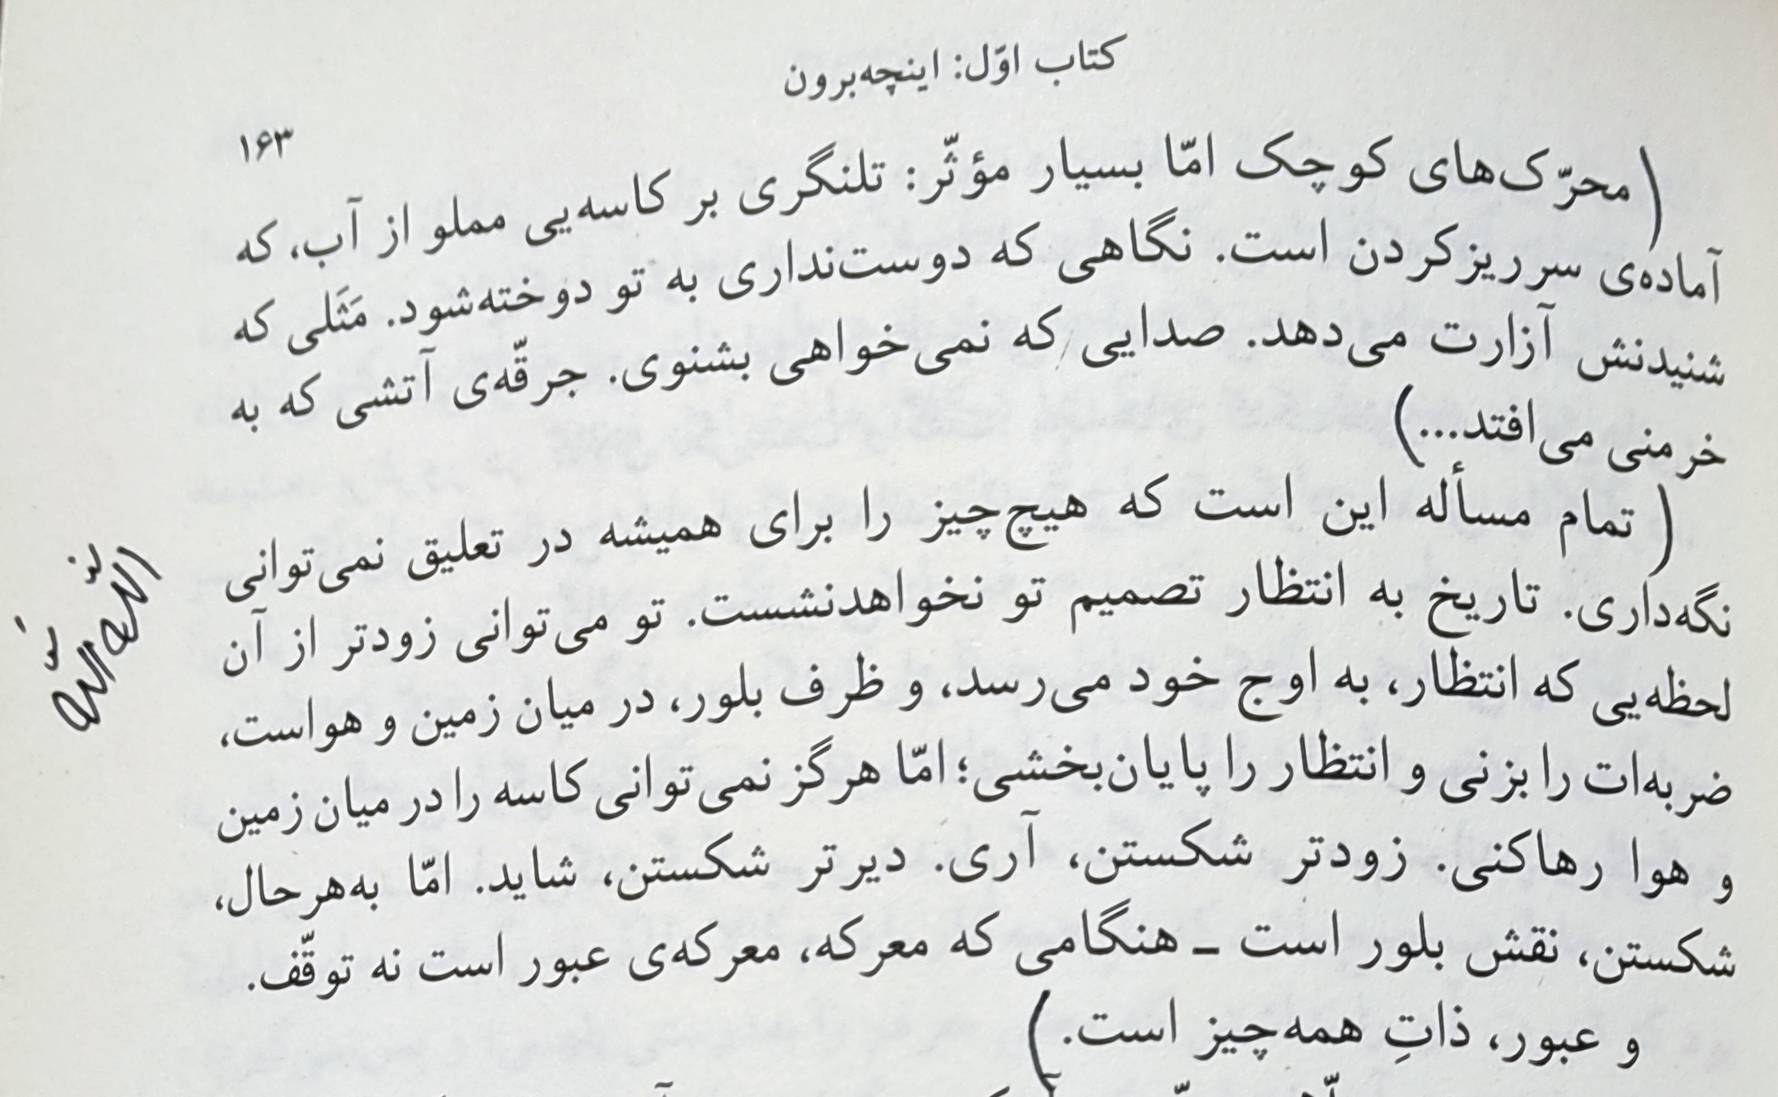 کتاب اوّل: اینچه‌برون
۱۶۳
(محرّک‌های کوچک امّا بسیار مؤثّر: تلنگری بر کاسه‌یی مملو از آب، که
آماده‌ی سرریزکردن است. نگاهی که دوست‌نداری به تو دوخته‌شود. مَثَلی که
شنیدنش آزارت می‌دهد. صدایی که نمی‌خواهی بشنوی. جرقّه‌ی آتشی که به
خرمنی می‌افتد...)
(تمام مسأله این است که هیچ‌چیز را برای همیشه در تعلیق نمی‌توانی
نگه‌داری. تاریخ به انتظار تصمیم تو نخواهدنشست. تو می‌توانی زودتر از آن
لحظه‌یی که انتظار، به اوج خود می‌رسد، و ظرف بلور، در میان زمین و هواست،
ضربه‌ات را بزنی و انتظار را پایان‌بخشی؛ امّا هرگز نمی‌توانی کاسه را در میان زمین
و هوا رهاکنی. زودتر شکستن، آری. دیرتر شکستن، شاید. امّا به‌هرحال،
شکستن، نقش بلور است ـ هنگامی که معرکه، معرکه‌ی عبور است نه توقّف.
و عبور، ذاتِ همه‌چیز است.)